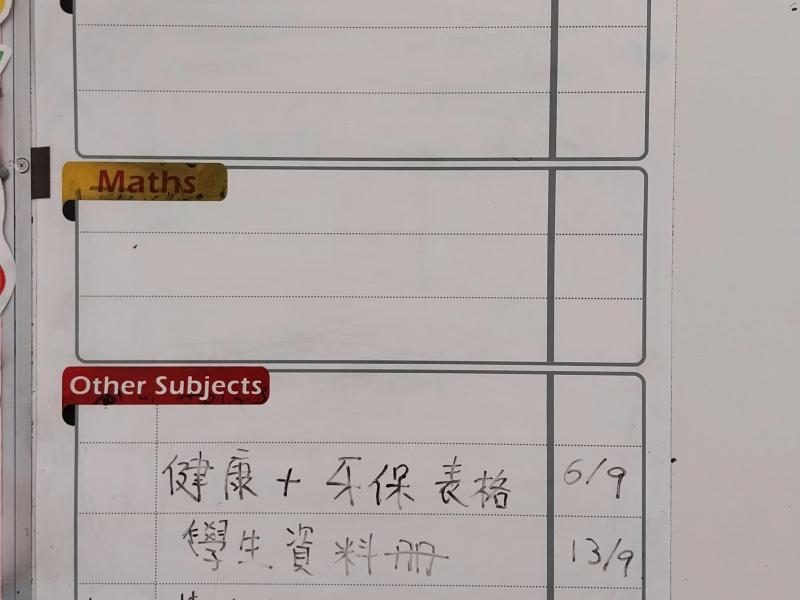 Maths
Other Subjects
健康+牙保表格 6/9
學生資料冊 13/9